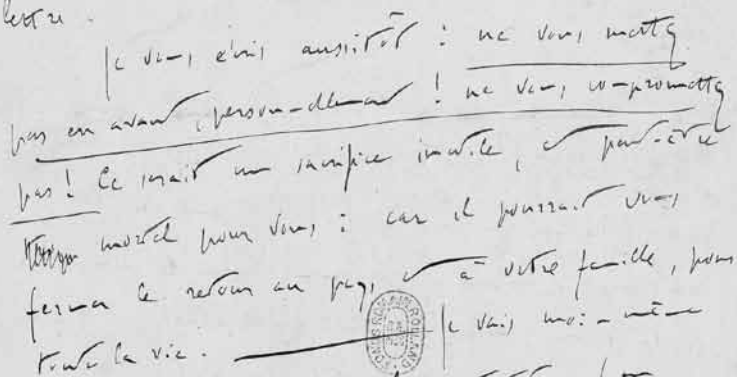 lettre.
Je vous écris aussitôt : ne vous mettez
pas en avant, personnellement ! ne vous compromettez
pas ! Ce serait un sacrifice inutile, et peut-être
mortel pour vous : car il pourrait vous
fermer le retour au pays et à votre famille, pour
toute la vie. — Je vais moi-même
FONDS ROMAIN-ROLLAND